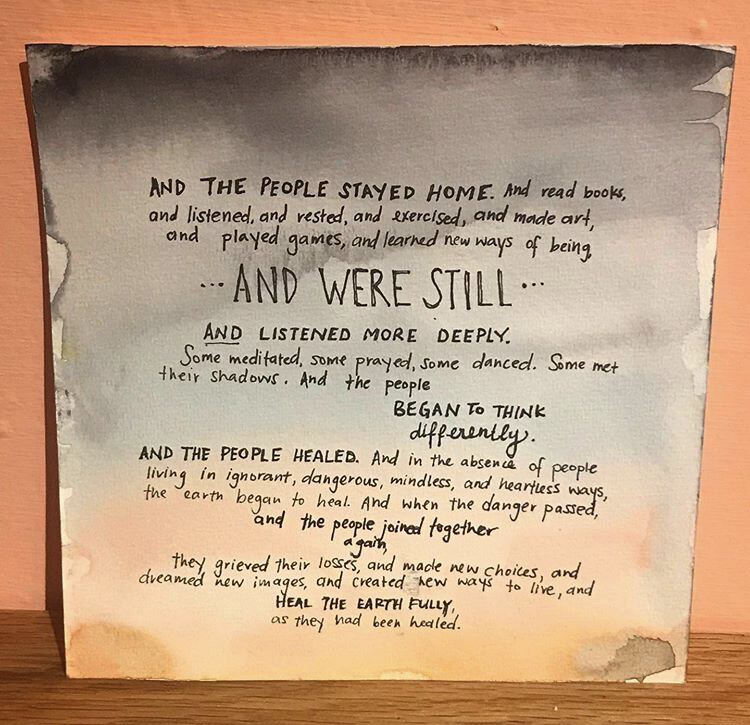 AND THE PEOPLE STAYED HOME. And read books,
and listened, and rested, and exercised, and made art,
and played games, and learned new ways of being,
... AND WERE STILL ...
AND LISTENED MORE DEEPLY.
Some meditated, some prayed, some danced. Some met
their shadows. And the people
BEGAN TO THINK
differently.
AND THE PEOPLE HEALED. And in the absence of people
living in ignorant, dangerous, mindless, and heartless ways,
the earth began to heal. And when the danger passed,
and the people joined together
again,
they grieved their losses, and made new choices, and
dreamed new images, and created new ways to live, and
HEAL THE EARTH FULLY,
as they had been healed.